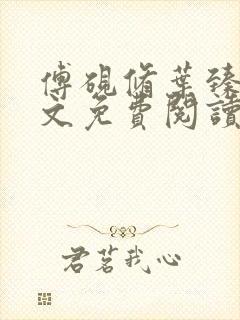 傅硯脩葉臻
文免費閱讀
君茗我心